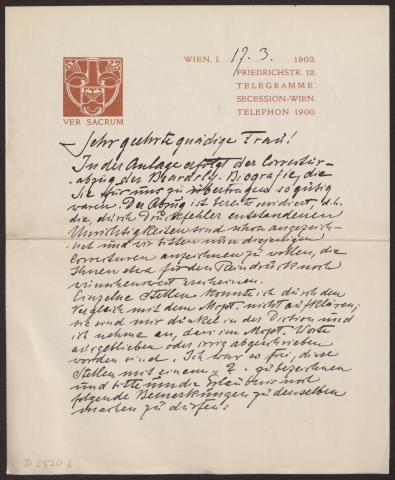 VER SACRUM
WIEN, I. 17. 3. 1903.
FRIEDRICHSTR. 12.
TELEGRAMME:
SECESSION-WIEN.
TELEPHON 1900.
Sehr geehrte gnädige Frau!
In der Anlage erfolgt der Correctur-
abzug der Beardsley-Biografie, die
Sie für uns zu übertragen so gütig
waren. Der Abzug ist bereits revidiert, d.h.
die, durch Druckfehler entstandenen
Unrichtigkeiten sind schon angezeich-
net und wir bitten nun diejenigen
Correcturen anzeichnen zu wollen, die
Ihnen etwa für den Reindruck noch
wünschenswert erscheinen.
Einzelne Stellen konnte ich durch den
Vergleich mit dem Mspt. nicht aufklären;
sie sind mir dunkel in der Diction und
ich nehme an, dass im Mspt. Worte
ausgeblieben oder irrig abgeschrieben
worden sind. Ich war so frei, diese
Stellen mit einem "?" zu bezeichnen
und bitte um die Erlaubnis noch
folgende Bemerkungen zu denselben
machen zu dürfen:
D 2520 b